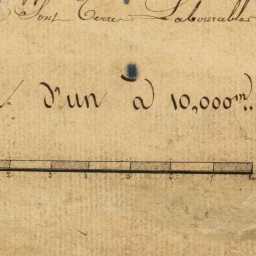 Sont Terres Labourables
d'un à 10,000 m.